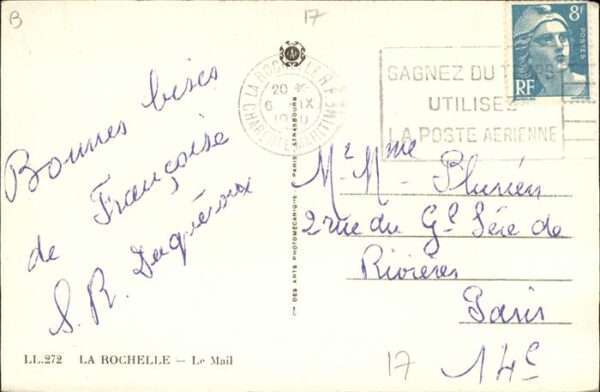 B
17
Bonnes bises
de Françoise
S. R.
LA ROCHELLE R.P.
20 H
6 IX
CHARENTE MARITIME
GAGNEZ DU TEMPS
UTILISEZ
LA POSTE AERIENNE
8F
POSTES
RF
DES ARTS PHOTOMÉCANIQUE PARIS-STRASBOURG
Mr Mme Plurien
2 rue du Gl Séré de
Rivières
Paris
14e
17
LL.272 LA ROCHELLE — Le Mail